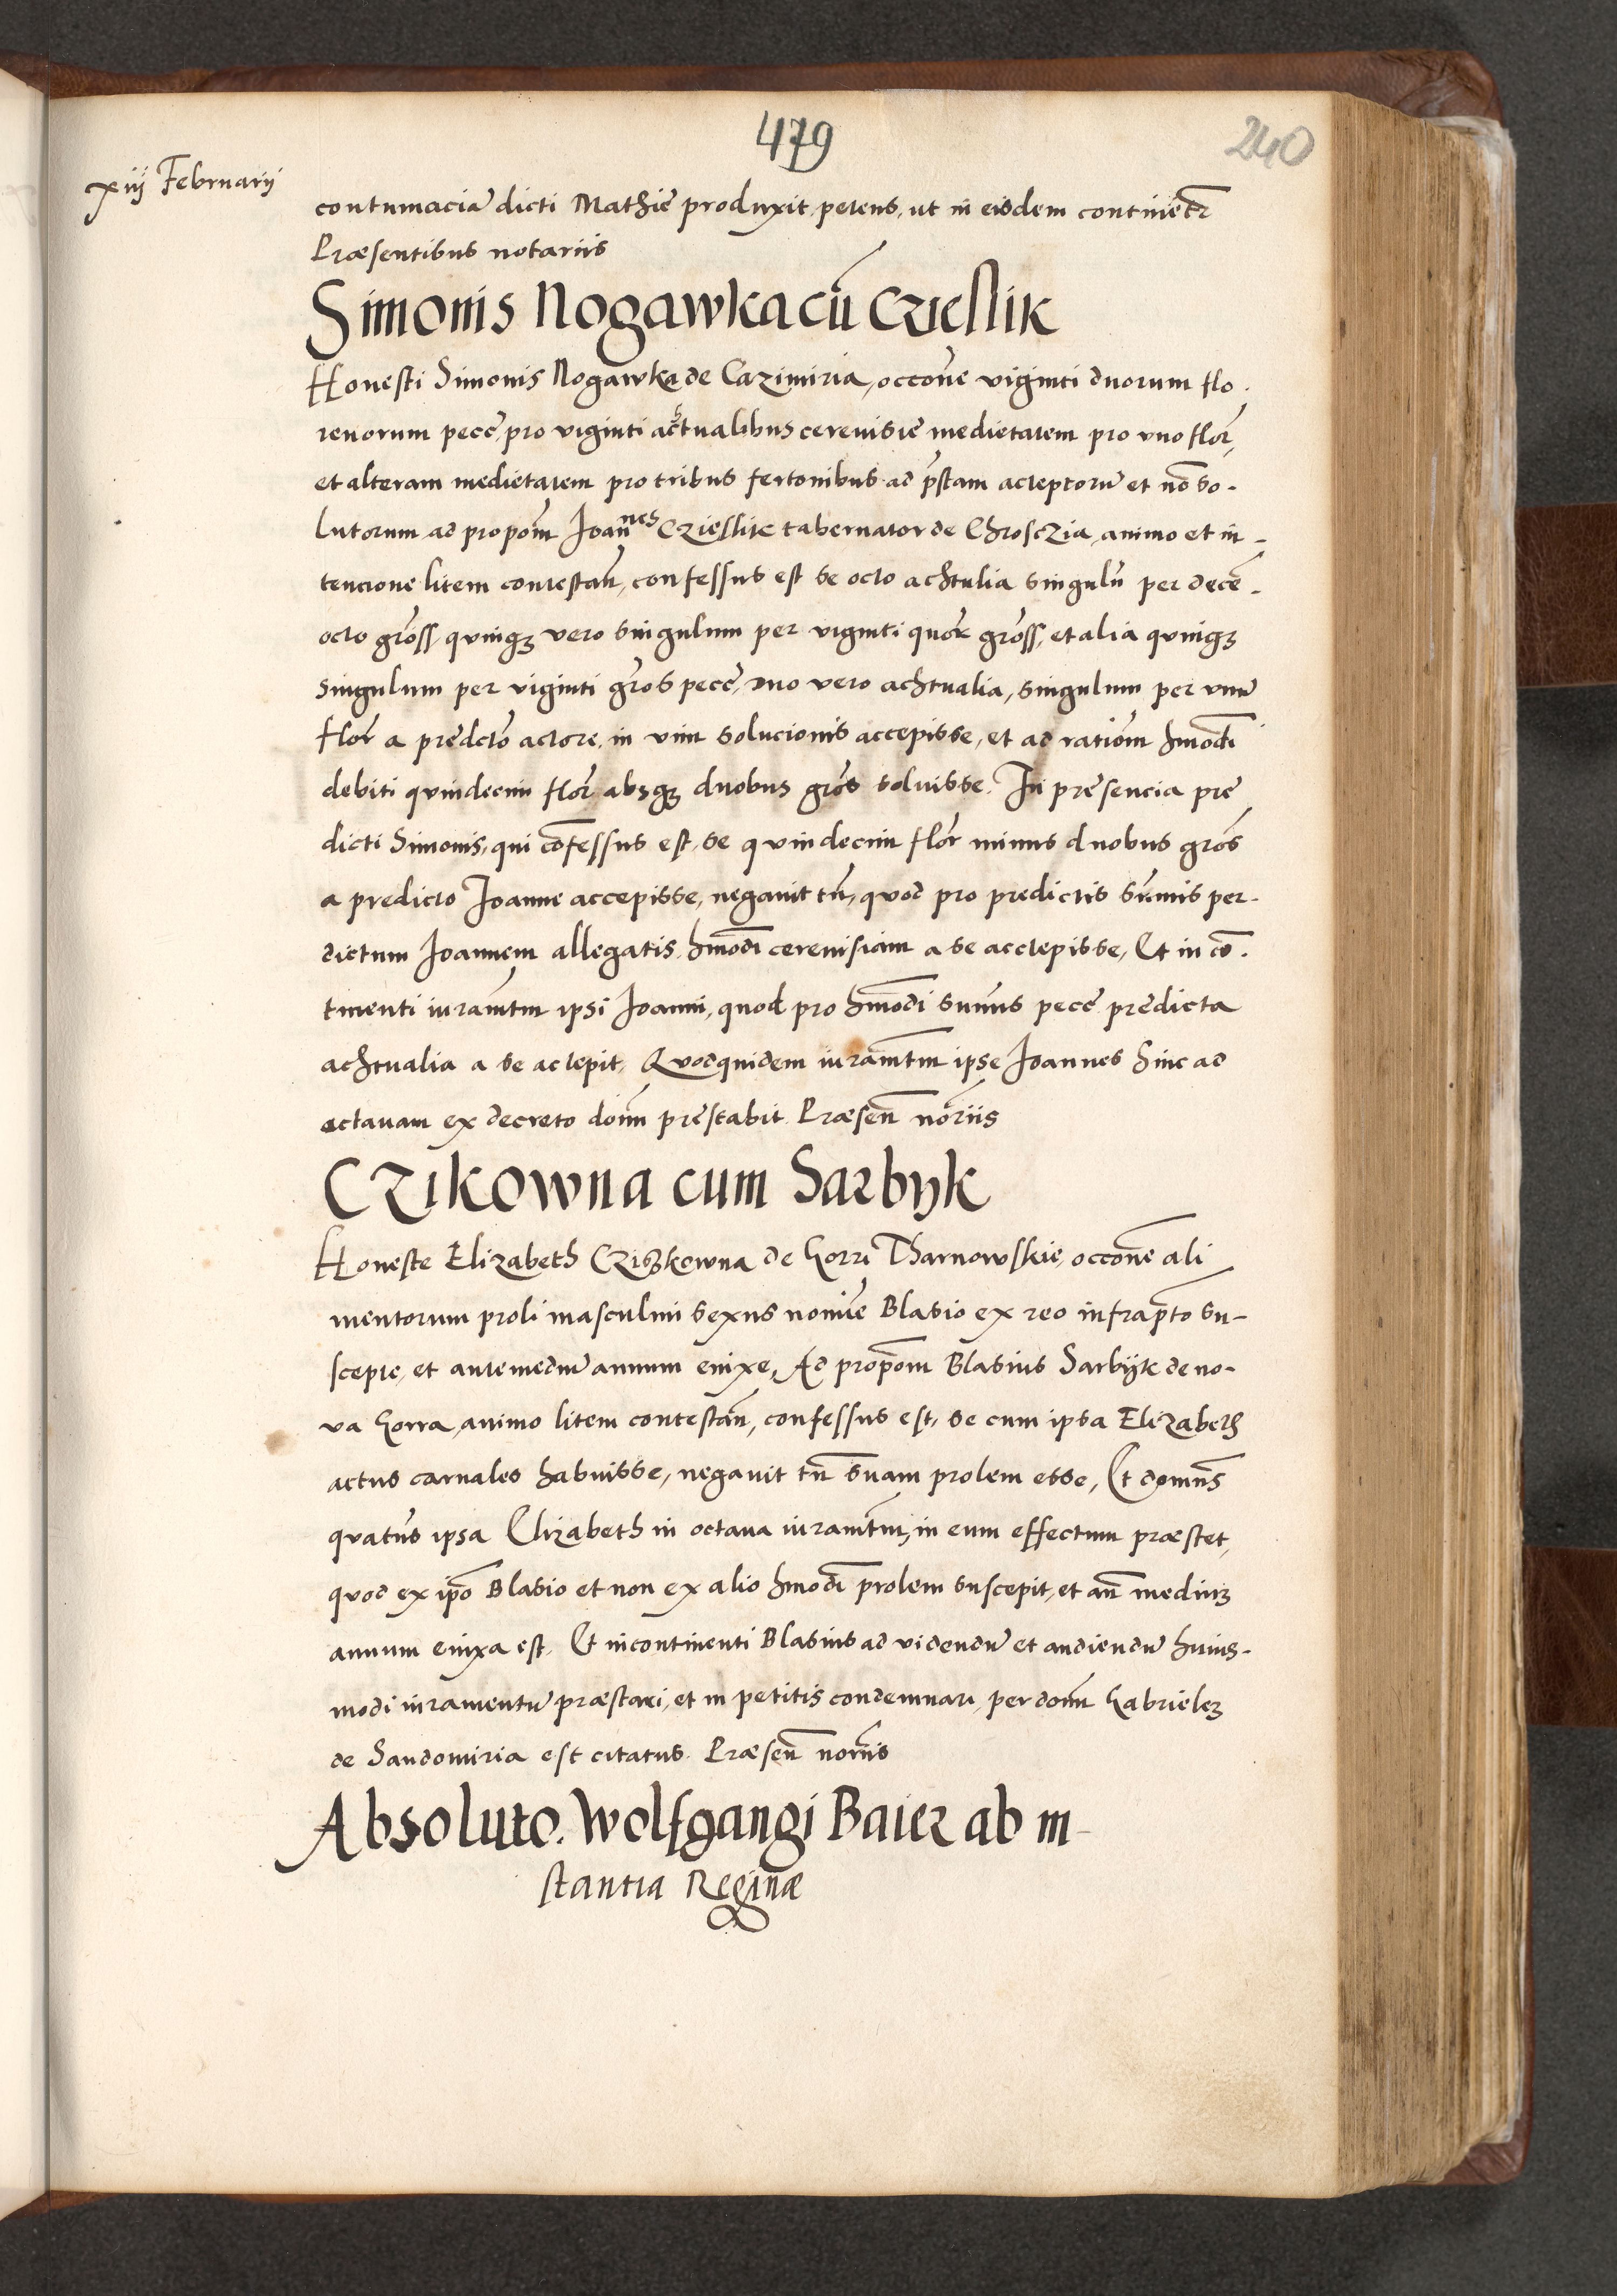 479
240
xiij Februarij
contumaciã dicti Mathie produxit, petens, ut in eisdem continetr
Præsentibus notariis
Simonis Nogawka cũ Czieslik
Honesti Simonis Nogawka de Cazimiria, occone viginti duorum flo.
renorum pecc, pro viginti achtualibus cerevisie medietatem pro vno flor,
et alteram medietatem pro tribus fertonibus ad pstam acceptorũ et nõ so.
lutorum ad propom Joannes Czieslik tabernator de Chrosczia, animo et in-
tencione litem contestan, confessus est se octo achtulia singulũ per decẽ.
octo gross, quinqз vero singulum per viginti quor gross, et alia quinqз
singulum per viginti gros pecc, duo vero achtualia, singulum per vnũ
flor a predcto actore, in vim solucionis accepisse, et ad rationm hmodi
debiti quindecim flor absqз duobus gros soluisse. In presencia pre
dicti Simonis, qui cõfessus est, se quindecim flor minus duobus gros
a predicto Joanne accepisse, negauit tñ, quod pro predictis sũmis per.
dictum Joannem allegatis, hmodi cereuisiam a se accepisse, Et in cõ.
tinenti iuramtm ipsi Joanni, quod pro hmodi summis pecc predicta
achtualia a se accepit, Quodquidem iuramtm ipse Joannes hinc ad
octauam ex decreto domi prestabit. Præsen noriis
Czikowna cum Sarbyk
Honeste Elizabeth Cziszkowna de Gorri Tharnowskie, occone ali
mentorum proli masculini sexus nomine Blasio ex reo infrapto su-
scepte, et ante mediũ annum enixe, Ad propom Blasius Sarbijk de no-
va Gorra, animo litem contestan, confessus est, se cum ipsa Elizabeth
actus carnales habuisse, negauit tñ suam prolem esse, Et domns
quatns ipsa Elizabeth in octaua iuramtm, in eum effectum præstet,
quod ex ipo Blasio et non ex alio hmodi prolem suscepit, et añ mediuз
annum enixa est. Et incontinenti Blasius ad videndũ et audiendũ huius-
modi iuramentũ præstari, et in petitis condemnari, per domi Gabrieleз
de Sandomiria est citatus. Præsen noriis
Absoluto. Wolfgangi Baier ab in-
stantia Reginæ